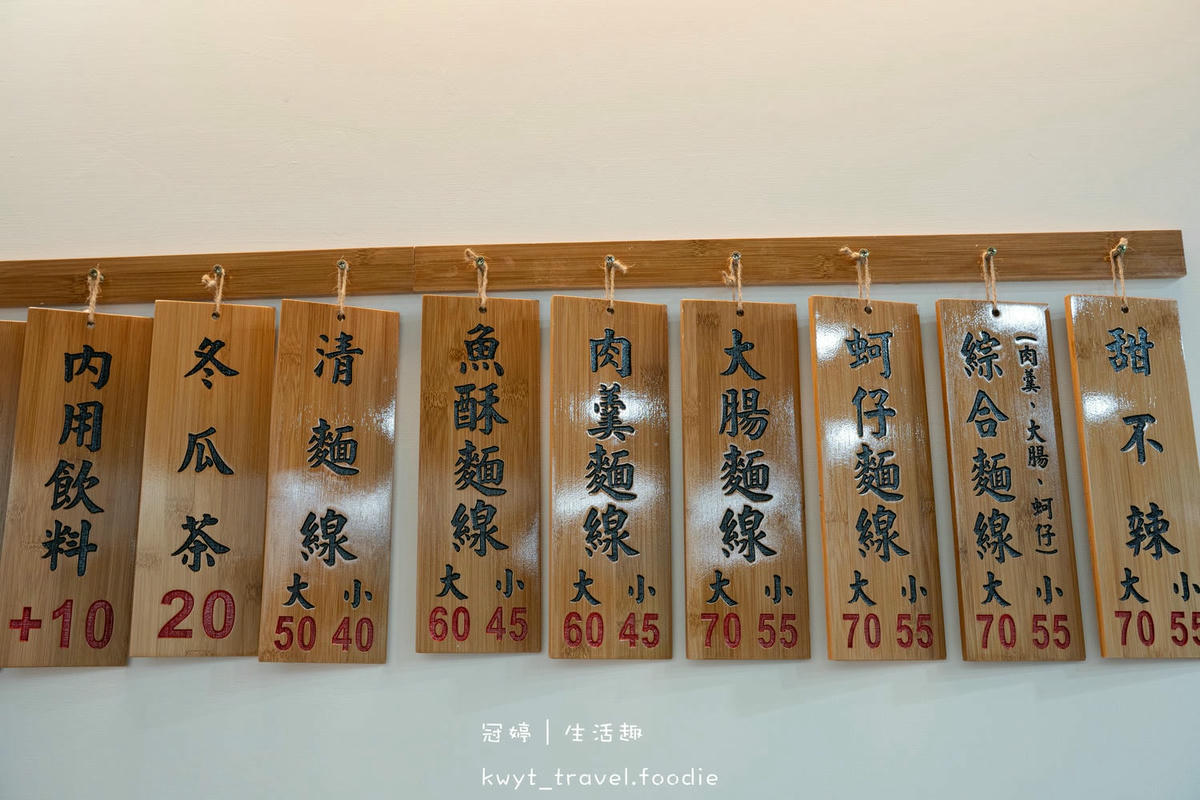 內用飲料
+10
冬瓜茶
20
清麵線
大 小
50 40
魚酥麵線
大 小
60 45
肉羹麵線
大 小
60 45
大腸麵線
大 小
70 55
蚵仔麵線
大 小
70 55
綜合麵線
(肉羹、大腸、蚵仔)
大 小
70 55
甜不辣
大 小
70 55
冠婷|生活趣
kwyt_travel.foodie